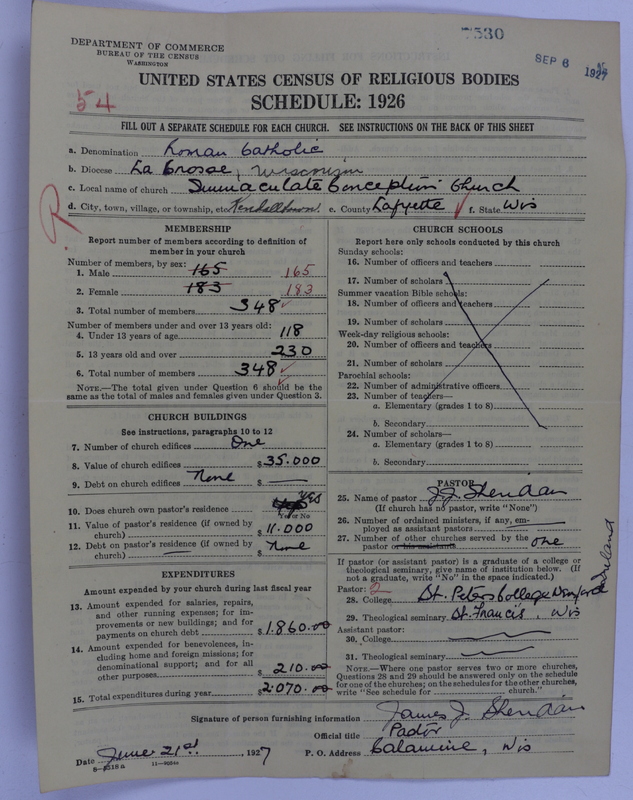 7530
SEP 6 1927
DEPARTMENT OF COMMERCE
BUREAU OF THE CENSUS
WASHINGTON
UNITED STATES CENSUS OF RELIGIOUS BODIES
SCHEDULE: 1926
54
FILL OUT A SEPARATE SCHEDULE FOR EACH CHURCH. SEE INSTRUCTIONS ON THE BACK OF THIS SHEET
a. Denomination Roman Catholic
b. Diocese La Crosse, Wisconsin
c. Local name of church Immaculate Conception Church
d. City, town, village, or township, etc. e. County Lafyette f. State Wis
R
MEMBERSHIP
Report number of members according to definition of
member in your church
Number of members, by sex:
1. Male 165 165
2. Female 183 183
3. Total number of members 348
Number of members under and over 13 years old:
4. Under 13 years of age 118
5. 13 years old and over 230
6. Total number of members 348
NOTE.—The total given under Question 6 should be the
same as the total of males and females given under Question 3.
CHURCH BUILDINGS
See instructions, paragraphs 10 to 12
7. Number of church edifices One
8. Value of church edifices $ 35.000
9. Debt on church edifices None $
10. Does church own pastor's residence yes
Yes or No
11. Value of pastor's residence (if owned by
church) $ 11.000
12. Debt on pastor's residence (if owned by
church) $ None
EXPENDITURES
Amount expended by your church during last fiscal year
13. Amount expended for salaries, repairs,
and other running expenses; for im-
provements or new buildings; and for
payments on church debt $ 1.860.00
14. Amount expended for benevolences, in-
cluding home and foreign missions; for
denominational support; and for all
other purposes $ 210.00
15. Total expenditures during year $ 2.070.00
CHURCH SCHOOLS
Report here only schools conducted by this church
Sunday schools:
16. Number of officers and teachers
17. Number of scholars
Summer vacation Bible schools:
18. Number of officers and teachers
19. Number of scholars
Week-day religious schools:
20. Number of officers and teachers
21. Number of scholars
Parochial schools:
22. Number of administrative officers
23. Number of teachers—
a. Elementary (grades 1 to 8)
b. Secondary
24. Number of scholars—
a. Elementary (grades 1 to 8)
b. Secondary
PASTOR
25. Name of pastor J.J. Sheridan
(If church has no pastor, write "None")
26. Number of ordained ministers, if any, em-
ployed as assistant pastors
27. Number of other churches served by the
pastor or his assistants one
If pastor (or assistant pastor) is a graduate of a college or
theological seminary, give name of institution below. (If
not a graduate, write "No" in the space indicated.)
Pastor: 2
28. College St. Peters College Wexford Ireland
29. Theological seminary St. Francis, Wis
Assistant pastor:
30. College
31. Theological seminary
NOTE.—Where one pastor serves two or more churches,
Questions 28 and 29 should be answered only on the schedule
for one of the churches; on the schedules for the other churches,
write "See schedule for church."
Signature of person furnishing information James J. Sheridan
Official title Pastor
Date June 21st, 1927 P. O. Address Calamine, Wis
8-5318a 11-9054a